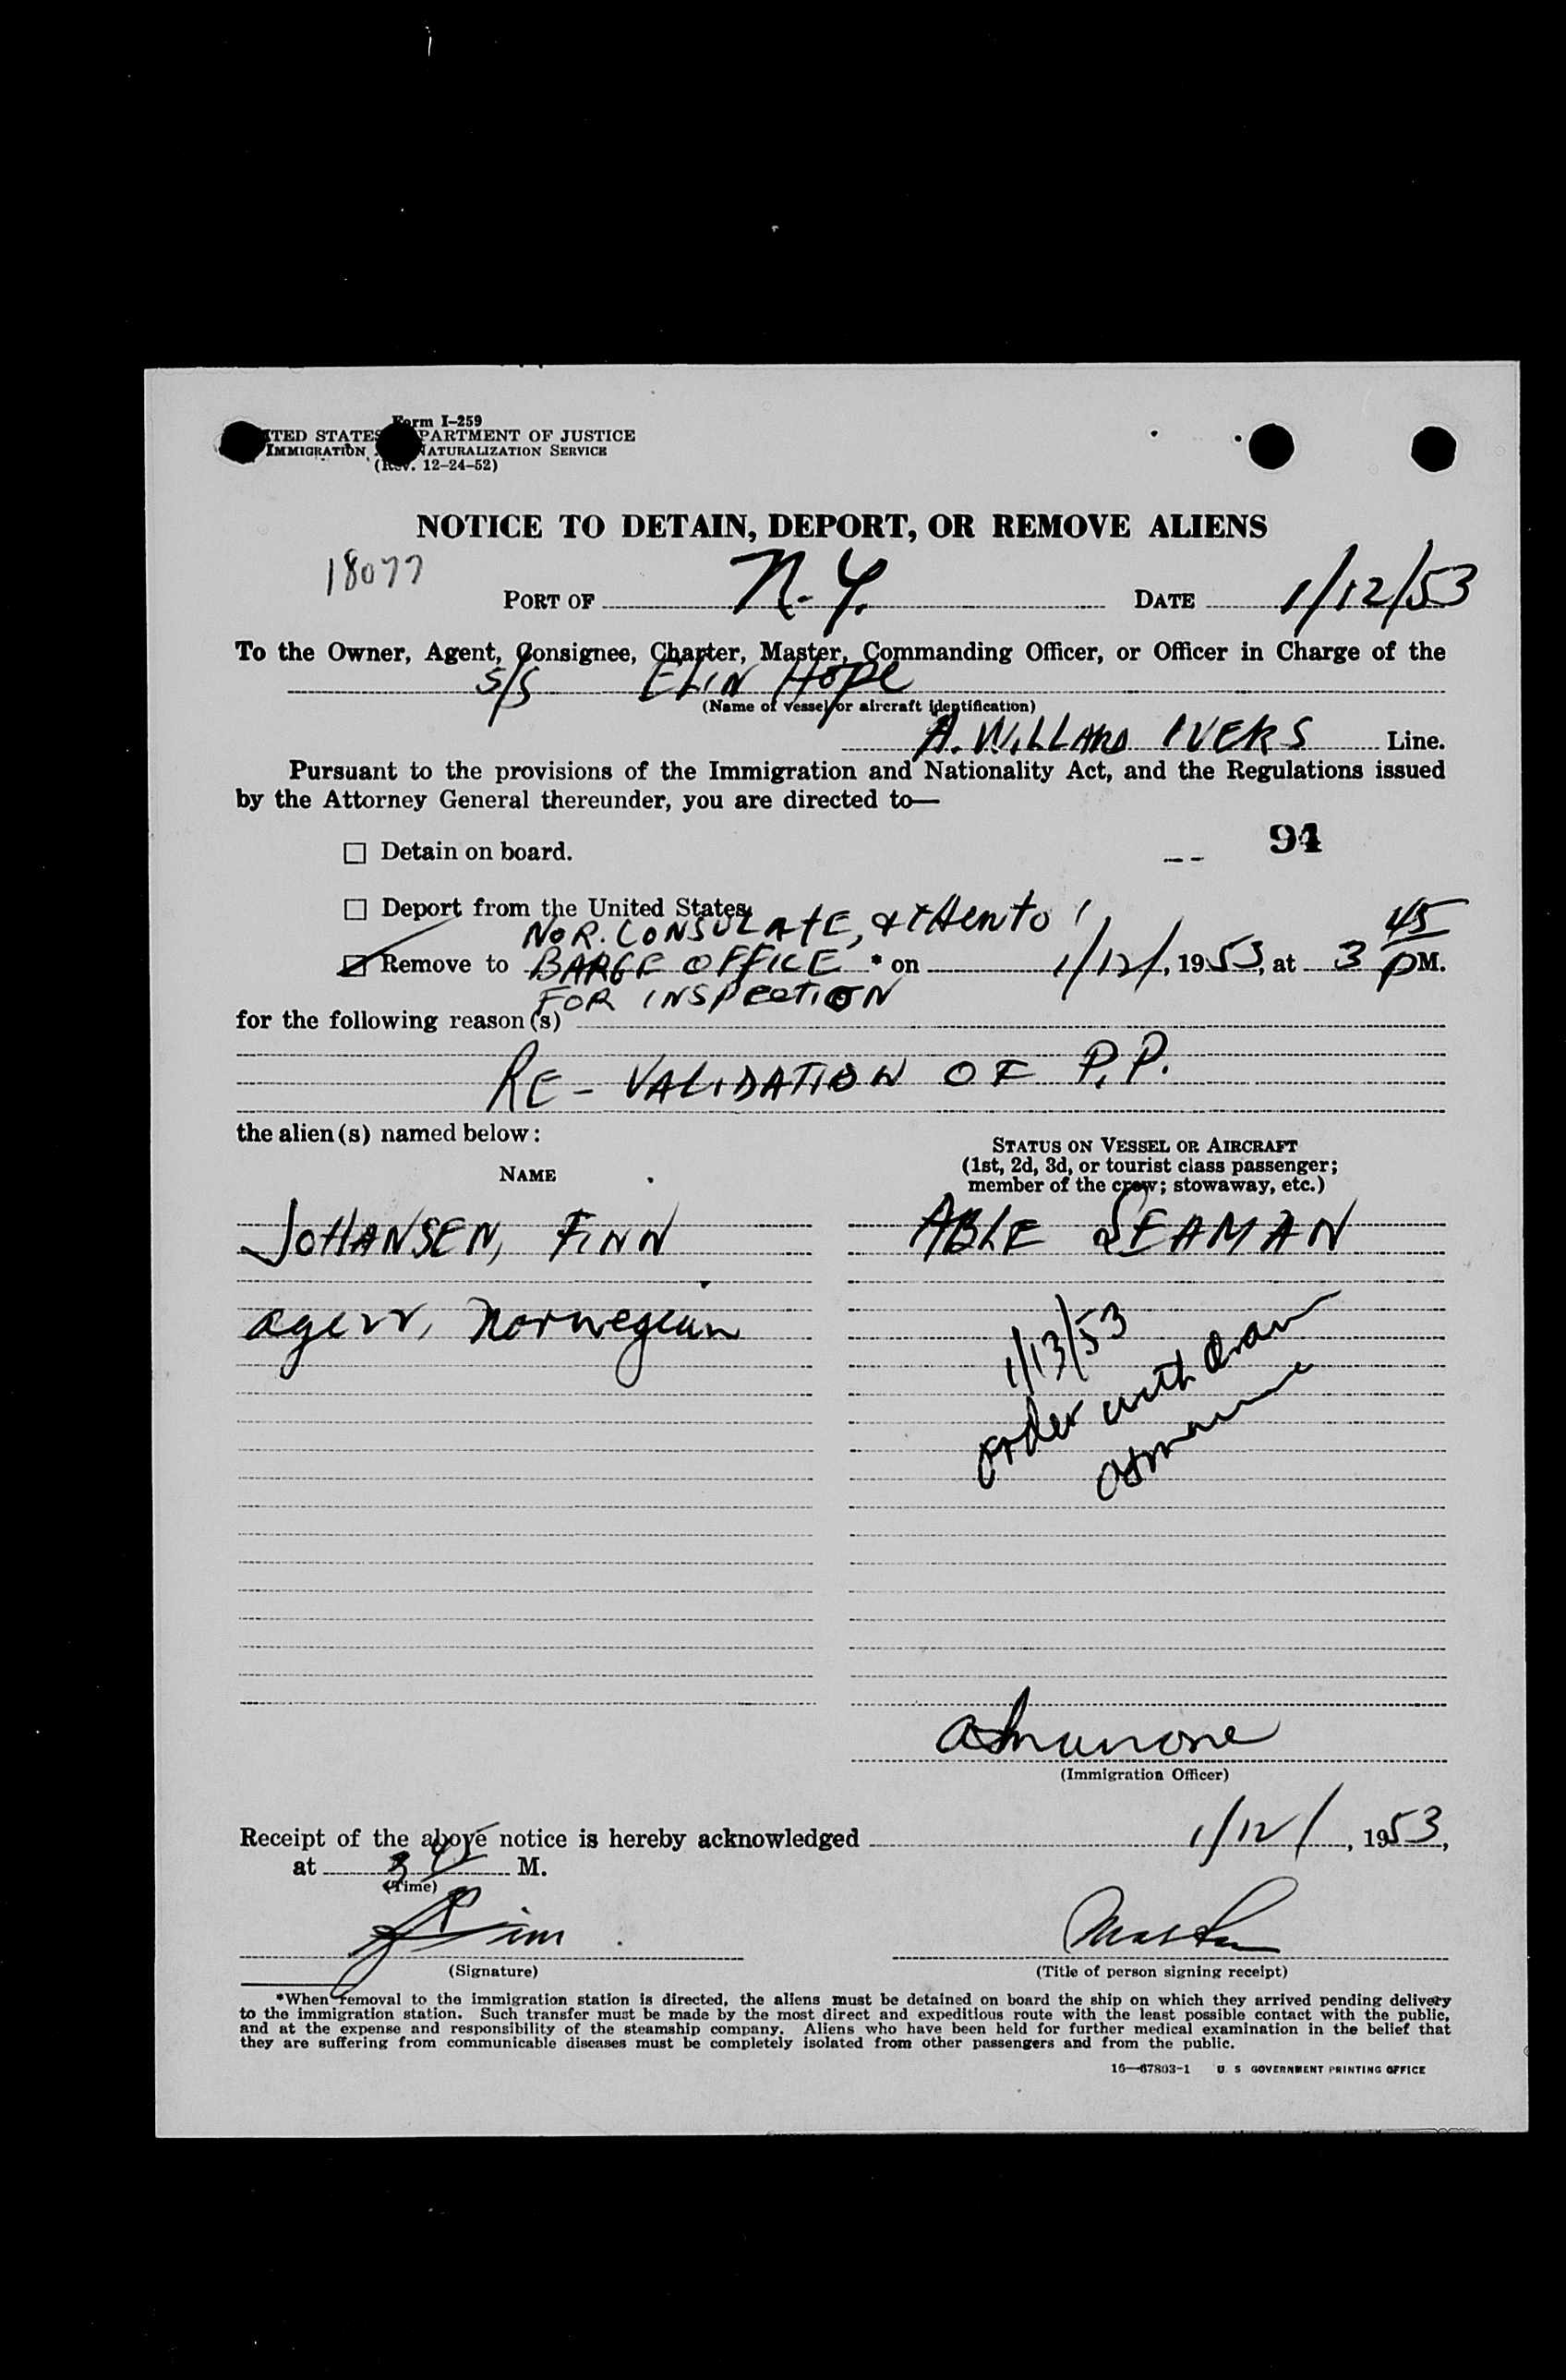 Form I-259
UNITED STATES DEPARTMENT OF JUSTICE
IMMIGRATION AND NATURALIZATION SERVICE
(Rev. 12-24-52)
NOTICE TO DETAIN, DEPORT, OR REMOVE ALIENS
18077
PORT OF N.Y. DATE 1/12/53
To the Owner, Agent, Consignee, Charter, Master, Commanding Officer, or Officer in Charge of the
S/S ELIN HOPE
(Name of vessel or aircraft identification)
A. WILLARD IVERS Line.
Pursuant to the provisions of the Immigration and Nationality Act, and the Regulations issued
by the Attorney General thereunder, you are directed to—
94
☐ Detain on board.
☐ Deport from the United States.
NOR. CONSULATE, & thento
☑ Remove to BARGE OFFICE * on 1/12/, 1953, at 3 45 PM.
FOR INSPECTION
for the following reason(s)
RE-VALIDATION OF P.P.
the alien(s) named below:
NAME
STATUS ON VESSEL OR AIRCRAFT
(1st, 2d, 3d, or tourist class passenger;
member of the crew; stowaway, etc.)
JOHANSEN, FINN ABLE SEAMAN
Norwegian
1/13/53
order withdrawn
(Immigration Officer)
Receipt of the above notice is hereby acknowledged 1/12/, 1953,
at 3 45 M.
(Time)
Master
(Signature) (Title of person signing receipt)
*When removal to the immigration station is directed, the aliens must be detained on board the ship on which they arrived pending delivery
to the immigration station. Such transfer must be made by the most direct and expeditious route with the least possible contact with the public,
and at the expense and responsibility of the steamship company. Aliens who have been held for further medical examination in the belief that
they are suffering from communicable diseases must be completely isolated from other passengers and from the public.
16—67803-1 U. S. GOVERNMENT PRINTING OFFICE